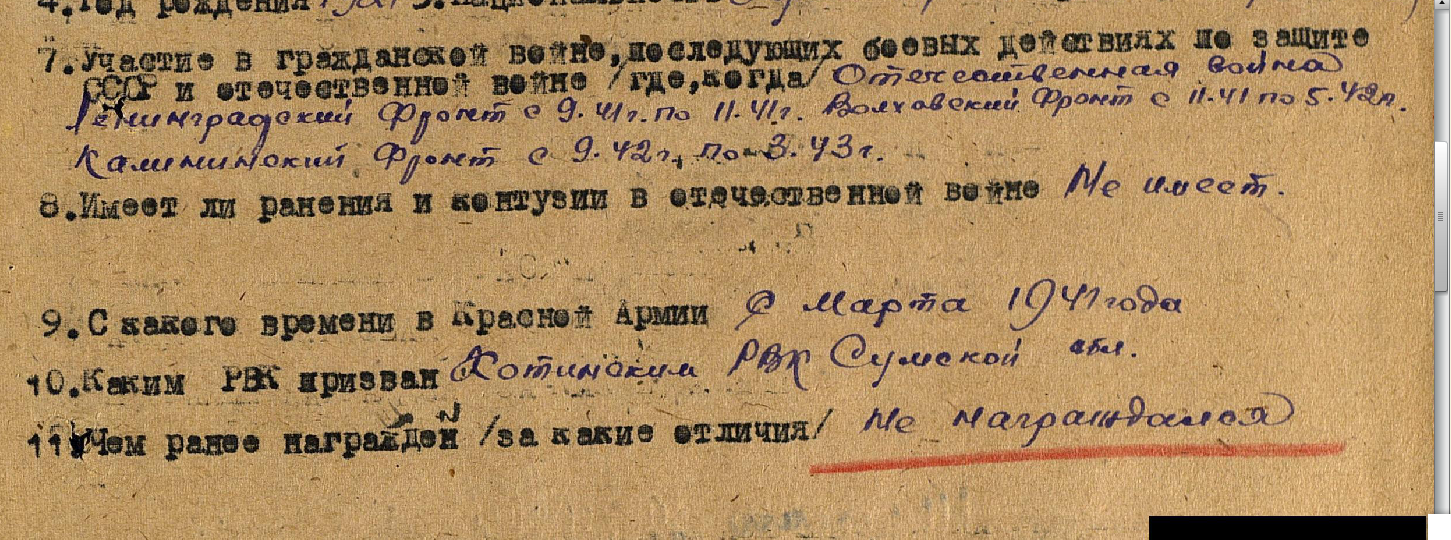 4. Год рождения
7. Участие в гражданской войне, последующих боевых действиях по защите
СССР и отечественной войне /где, когда/ Отечественная война
Ленинградский Фронт с 9.41г. по 11.41г. Волховский Фронт с 11.41 по 5.42г.
Калининский Фронт с 9.42г. по 3.43г.
8. Имеет ли ранения и контузии в отечественной войне Не имеет.
9. С какого времени в Красной Армии С Марта 1941 года
10. Каким РВК призван Хотинским РВК Сумской обл.
11. Чем ранее награжден /за какие отличия/ Не награждался